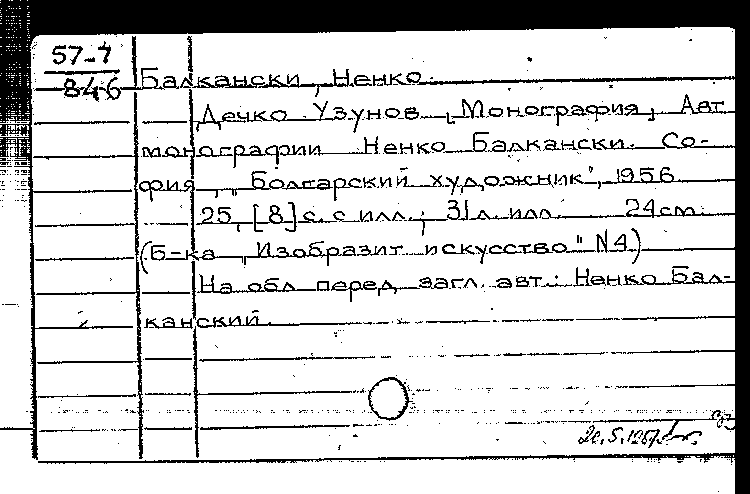 57-7
846
Балкански, Ненко.
Дечко Узунов [Монография] Авт
монографии Ненко Балкански. Со-
фия, „Болгарский художник", 1956
25, [8] с. с илл.; 31 л. илл. 24 см.
(Б-ка „Изобразит искусство" N4)
На обл перед загл. авт.: Ненко Бал-
канский.